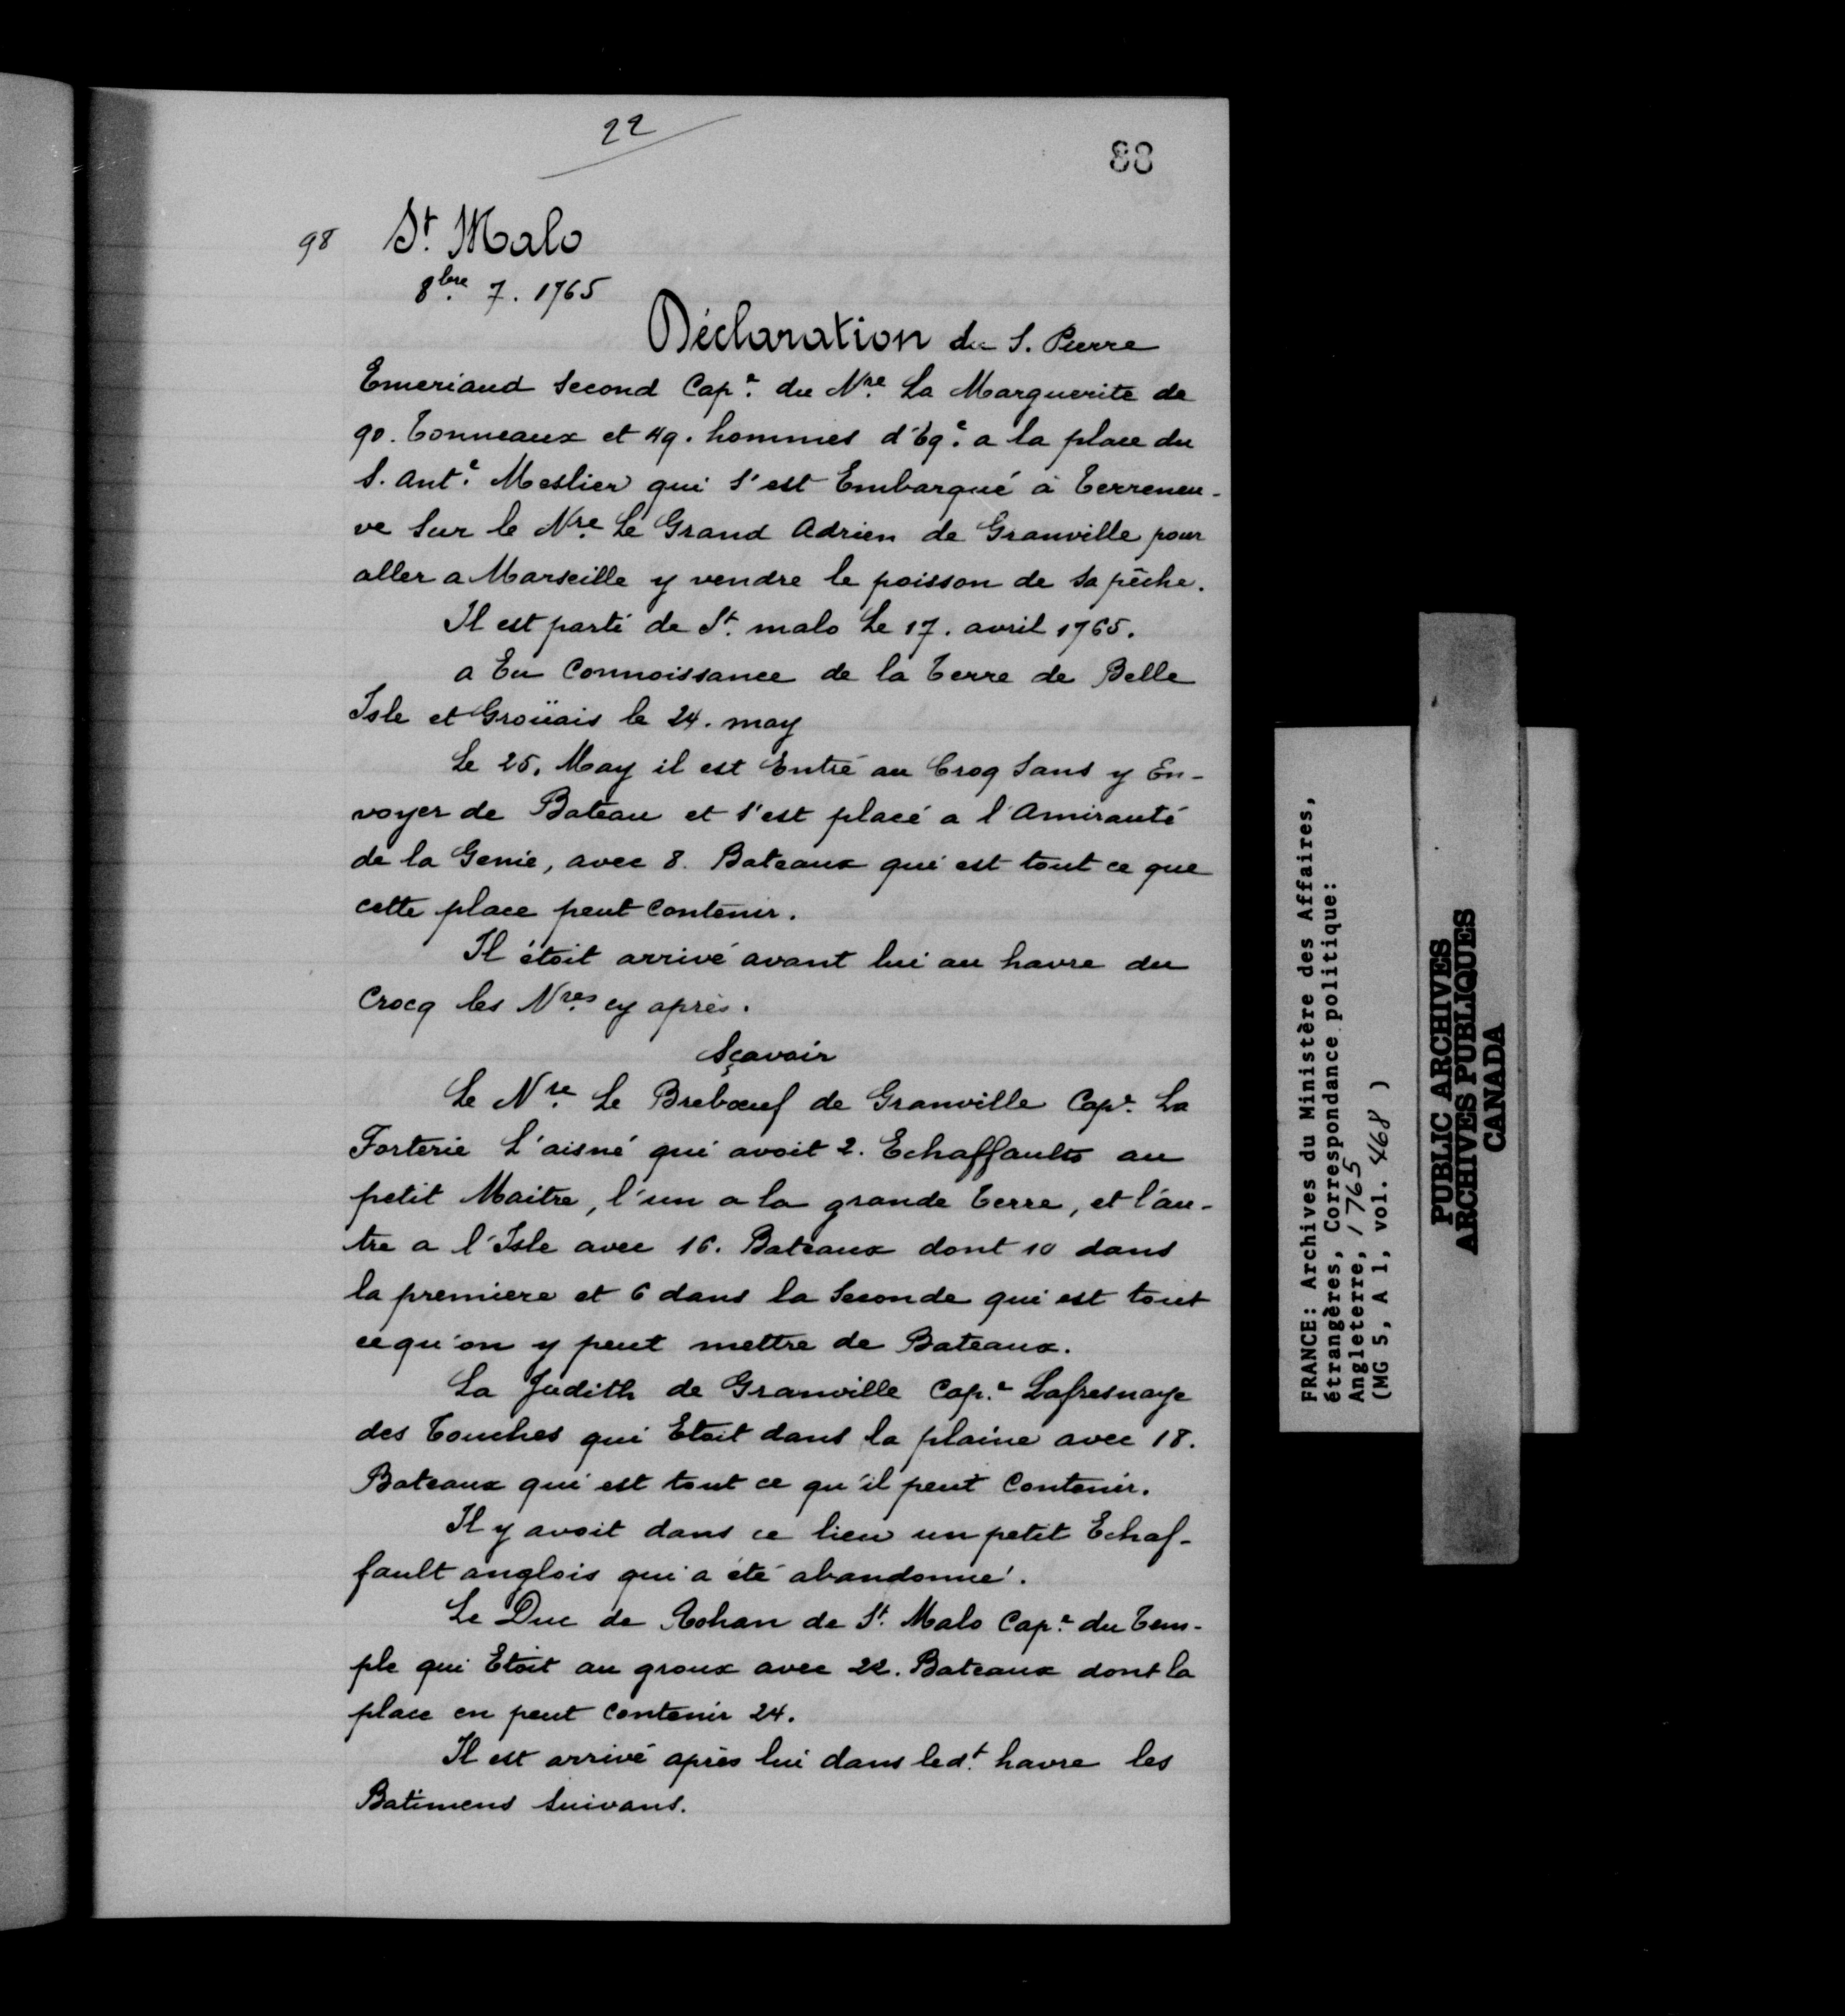 22
88
98 St. Malo
8bre 7. 1765
Déclaration du S. Pierre
Emeriaud Second Cape. du Nre. La Marguerite de
90. Tonneaux et 49. hommes d'Eqe. a la place du
S. Ante. Meslier qui s'est Embarqué à Terreneu-
ve Sur le Nre. Le Grand Adrien de Granville pour
aller a Marseille y vendre le poisson de sa pêche.
Il est parti de St. malo Le 17. avril 1765.
a Eu Connoissance de la Terre de Belle
Isle et Groüais le 24. may
Le 25. May il est Entré au Croq Sans y En-
voyer de Bateau et s'est placé a l'Amirauté
de la Genie, avec 8. Bateaux qui est tout ce que
cette place peut Contenir.
Il étoit arrivé avant lui au havre du
Crocq les Nres. cy après.
Sçavoir
Le Nre. Le Brebœuf de Granville Cape. La
Forterie L'aisné qui avoit 2. Echaffaults au
petit Maitre, l'un a la grande Terre, et l'au-
tre a l'Isle avec 16. Bateaux dont 10 dans
la premiere et 6 dans la Seconde qui est tout
cequ'on y peut mettre de Bateaux.
La Judith de Granville Cape. Lafresnaye
des Touches qui Etoit dans la plaine avec 18.
Bateaux qui est tout ce qu'il peut Contenir.
Il y avoit dans ce lieu un petit Echaf-
fault anglois qui a été abandonné.
Le Duc de Rohan de St. Malo Cape. du Tem-
ple qui Etoit au groux avec 22. Bateaux dont la
place en peut Contenir 24.
Il est arrivé après lui dans ledt. havre les
Batimens Suivans.
FRANCE: Archives du Ministère des Affaires,
étrangères, Correspondance politique:
Angleterre, 1765
(MG 5, A 1, vol. 468 )
PUBLIC ARCHIVES
ARCHIVES PUBLIQUES
CANADA